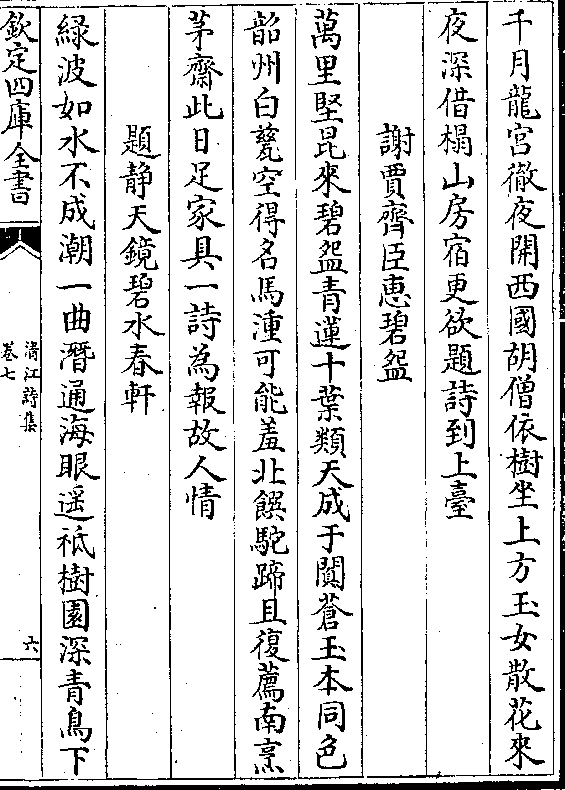 千月龍宫徹夜開西國胡僧依樹坐上方玉女散花來
夜深借榻山房宿更欲題詩到上臺
謝賈齊臣恵碧盌
萬里堅昆來碧盌青蓮十葉類天成于闐蒼玉本同色
韶州白甆空得名馬湩可能羞北饌駝蹄且復薦南烹
茅齋此日足家具一詩為報故人情
題静天鏡碧水春軒
緑波如水不成潮一曲潛通海眼遥祗樹園深青鳥下
欽定四庫全書
清江詩集
卷七
六